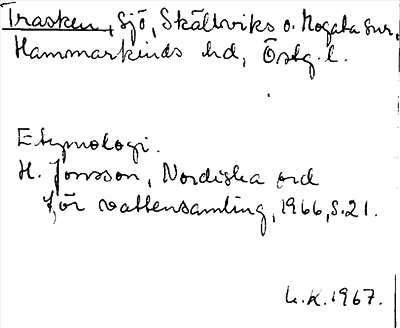 Trasken, Sjö, Skällviks o. Mogata snr,
Hammarkinds hd, Östg. l.
Etymologi.
H. Jonsson, Nordiska ord
för vattensamling, 1966, s. 21.
L.K. 1967.